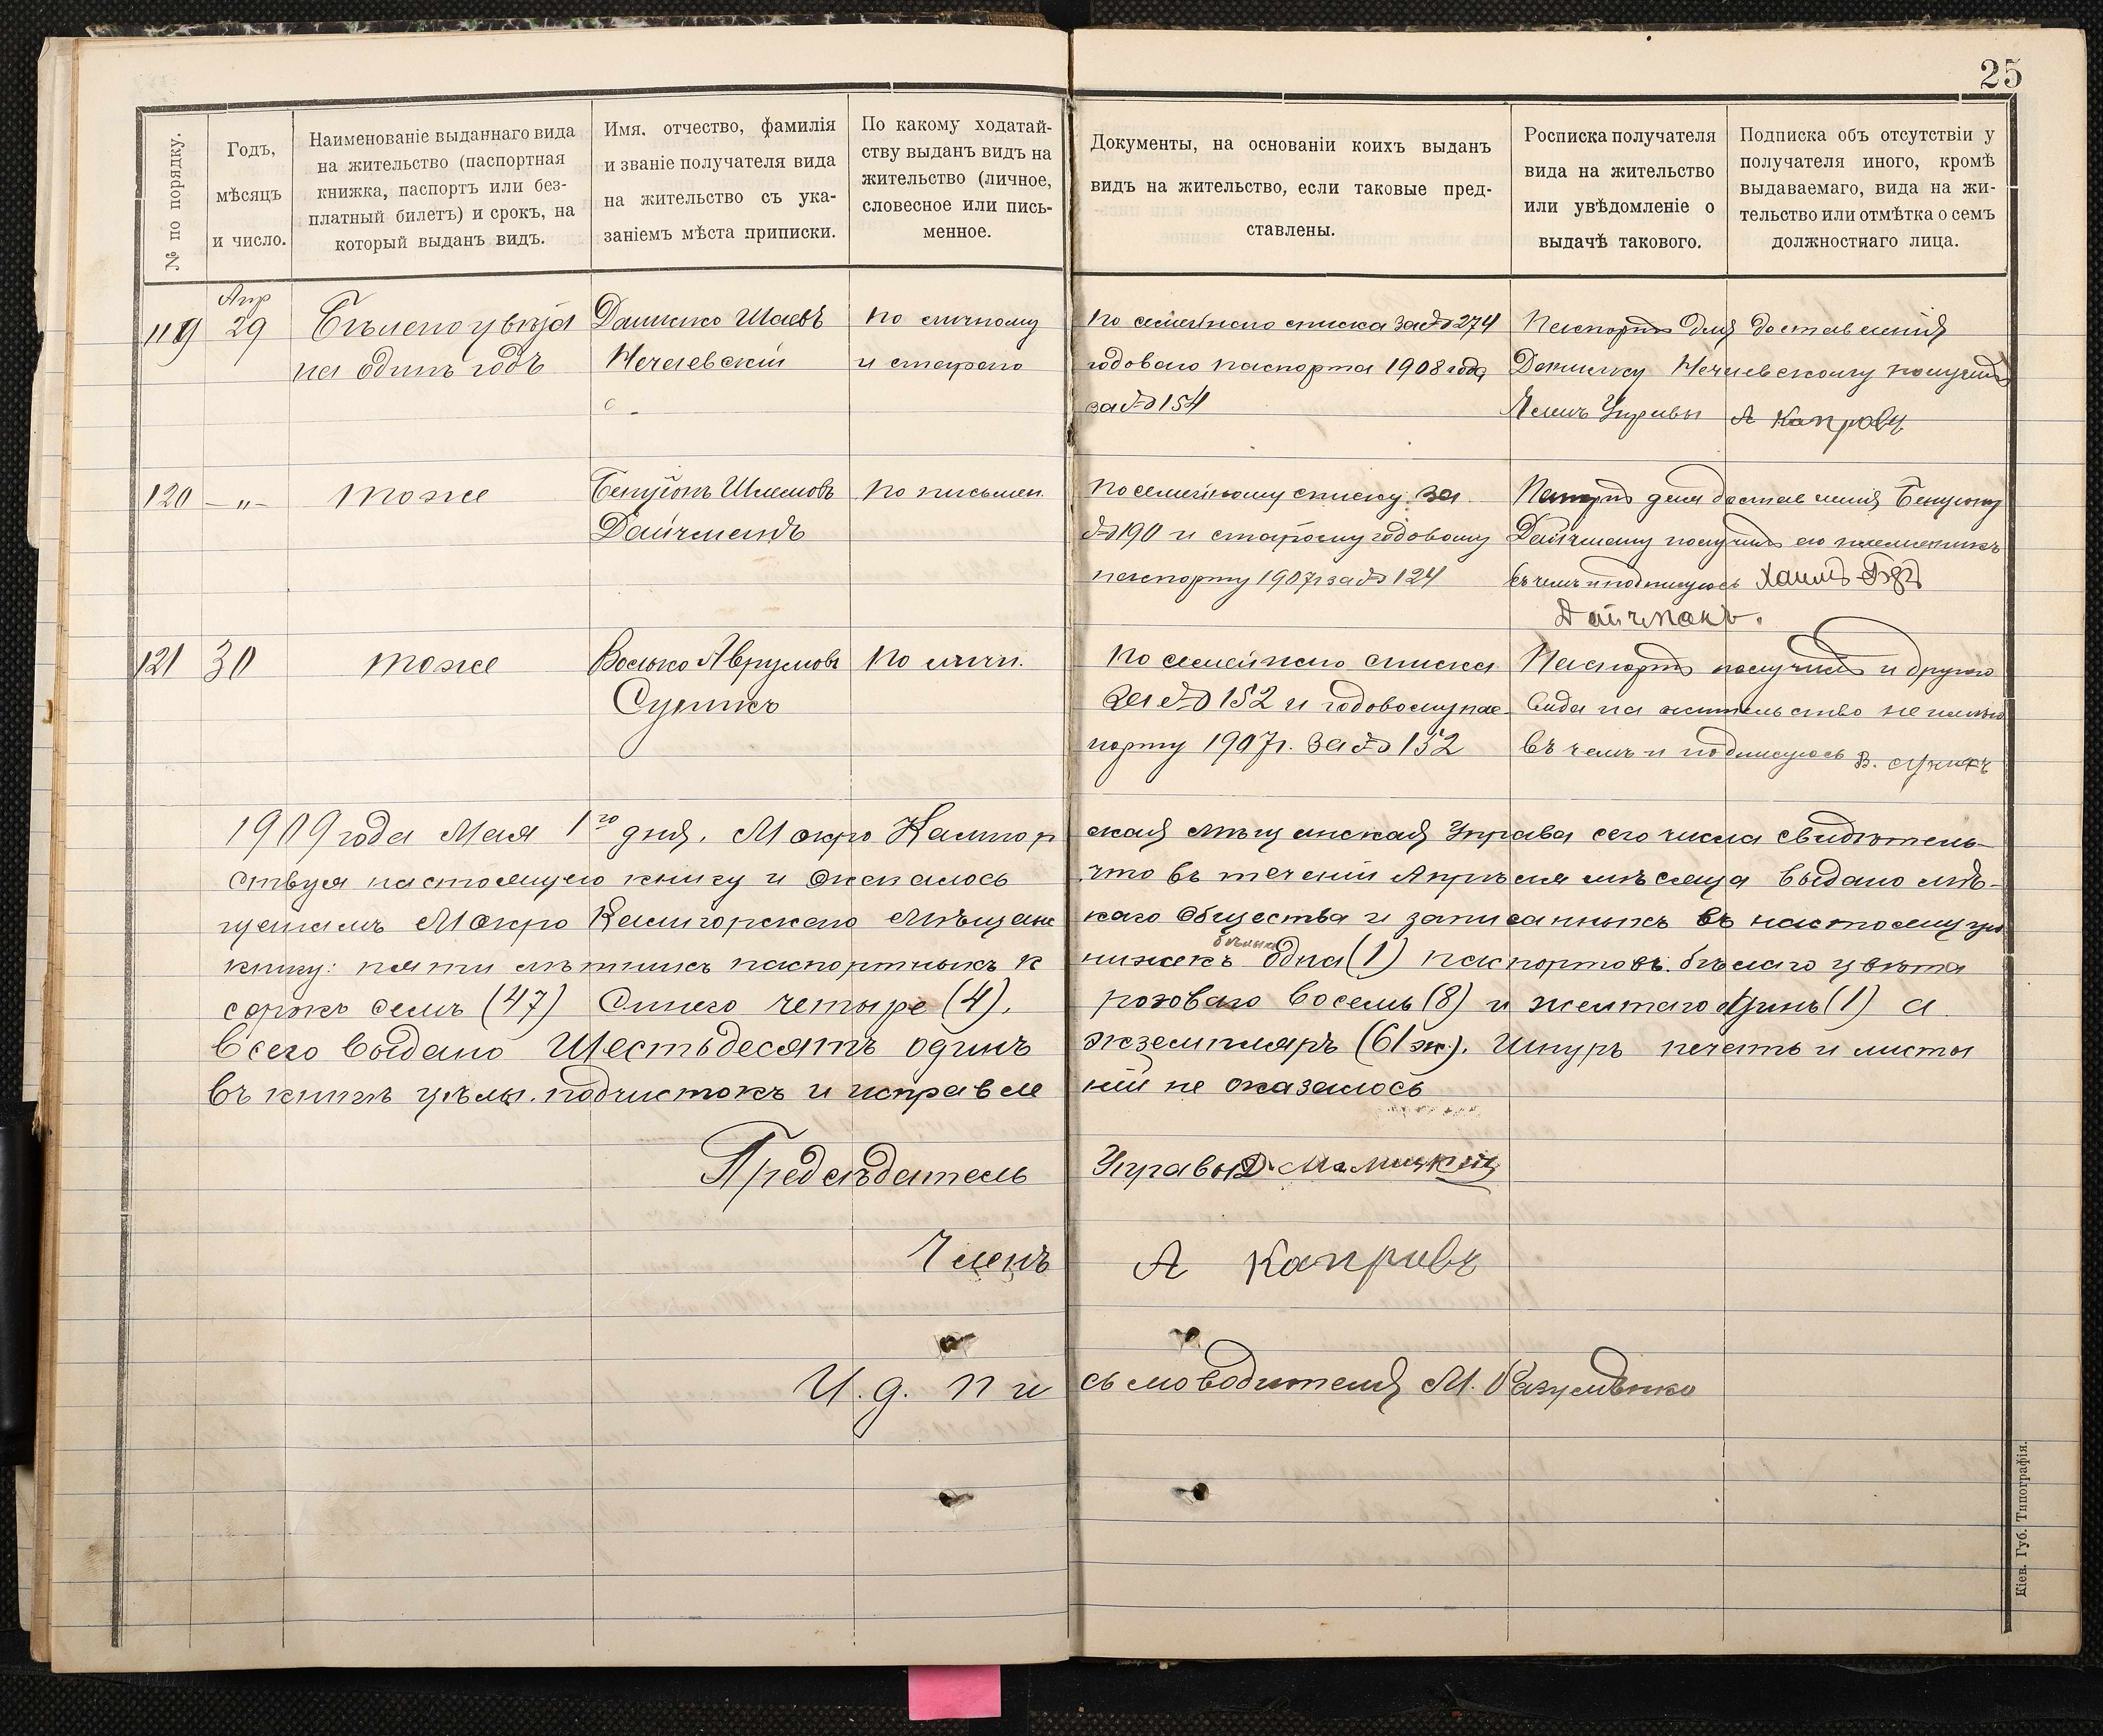 25
№ по порядку.
Годъ,
мѣсяцъ
и число.
Наименованіе выданнаго вида
на жительство (паспортная
книжка, паспортъ или без-
платный билетъ) и срокъ, на
который выданъ видъ.
Имя, отчество, фамилія
и званіе получателя вида
на жительство съ ука-
заніемъ мѣста приписки.
По какому ходатай-
ству выданъ видъ на
жительство (личное,
словесное или пись-
менное.
Документы, на основаніи коихъ выданъ
видъ на жительство, если таковые пред-
ставлены.
Росписка получателя
вида на жительство
или увѣдомленіе о
выдачѣ такового.
Подписка объ отсутствіи у
получателя иного, кромѣ
выдаваемаго, вида на жи-
тельство или отмѣтка о семъ
должностнаго лица.
119
Апр
29
Бѣлого цвѣта
на одинъ годъ
Данилко Шаевъ
Нечаевскій
По личному
и стараго
По семейного списка за № 274
годоваго паспорта 1908 года
за № 154
Паспортъ для доставленія
Данилку Нечаевскому получилъ
Членъ Управы А Капровъ
120
— „ —
тоже
Бенціонъ Шлемовъ
Дайчманъ
По письмен.
По семейному списку за
№ 190 и старому годовому
паспорту 1907 г за № 124
Паспортъ для доставленія Бенціону
Дайчману получилъ его племеникъ
въ чемъ и подписуюсь Хаимъ
Дайчманъ.
121
30
тоже
Волько Аврумовъ
Сушикъ
По личн.
По семейного списка
за № 152 и годовому пас-
порту 1907 г. за № 132
Паспортъ получилъ и другого
вида на жительство не имѣю
въ чемъ и подписуюсь В.
1909 года Мая 1го дня. Мокро Калигор
ская мѣщанская Управа сего числа свидѣтель-
ствуя настоящую книгу и оказалось
что въ теченіи Апрѣля мѣсяца выдано мѣ-
щанамъ Мокро Калигорскаго мѣщанс
каго Общества и записанныхъ въ настоящую
книгу: пяти лѣтнихъ паспортныхъ к
нижекъ одна (1) паспортовъ. бѣлаго цвѣта
сорокъ семь (47) Синего четыре (4),
розоваго восемь (8) и желтаго одинъ (1) а
всего выдано Шестьдесятъ одинъ
экземпляръ (61 эк.). Шнуръ печать и листы
въ книгѣ цѣлы. подчистокъ и исправле
ній не оказалось
Предсѣдатель Управы
Членъ А Капровъ
И. д. письмоводителя М. Разумѣнко
Кіев. Губ. Типографія.